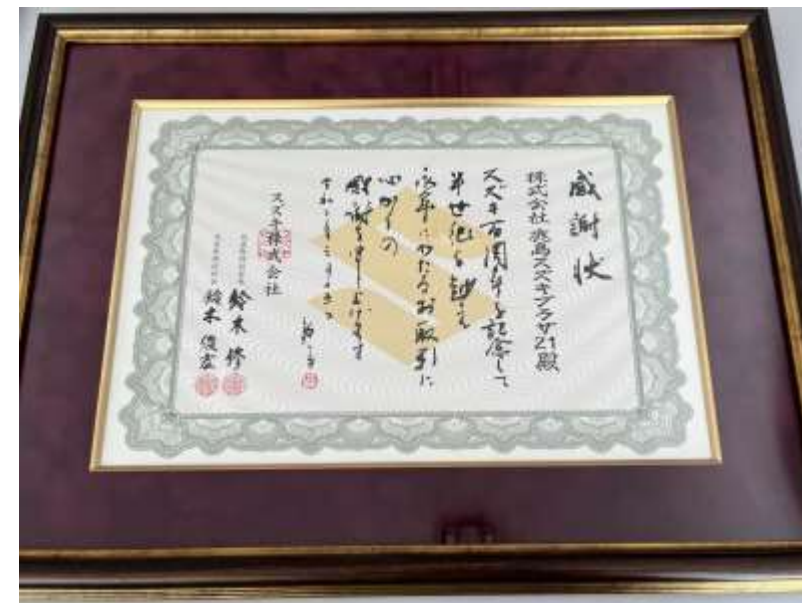 感謝状
株式会社 鹿島スズキプラザ21殿
スズキ百周年を記念して
半世紀を越え
永年にわたるお取引に
心からの
感謝を申し上げます
スズキ株式会社
鈴木 修
鈴木 俊宏